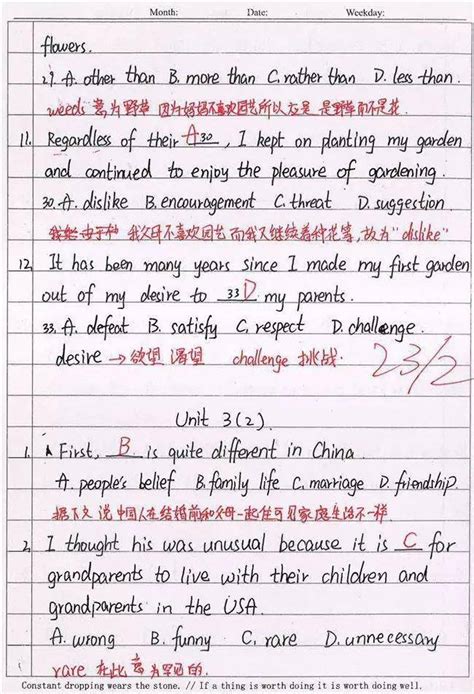 Month: Date: Weekday:
flowers.
29. A. other than B. more than C. rather than D. less than.
weeds 意为野草 因为妈妈不喜欢园艺所以应是 是野草而不是花.
11. Regardless of their A 30, I kept on planting my garden
and continued to enjoy the pleasure of gardening.
30. A. dislike B. encouragement C. threat D. suggestion
我父母不喜欢园艺 而我又继续着种花等, 故为"dislike"
12. It has been many years since I made my first garden
out of my desire to 33 D my parents.
33. A. defeat B. satisfy C. respect D. challenge.
desire → 欲望 渴望 challenge 挑战.
23/2
Unit 3(2).
1. First, B is quite different in China.
A. people's belief B. family life C. marriage D. friendship.
据下文 说中国人在结婚前和父母一起住可见家庭生活不一样.
2. I thought his was unusual because it is C for
grandparents to live with their children and
grandparents in the USA.
A. wrong B. funny C. rare D. unnecessary
rare 在此意为罕见的.
Constant dropping wears the stone. // If a thing is worth doing it is worth doing well.